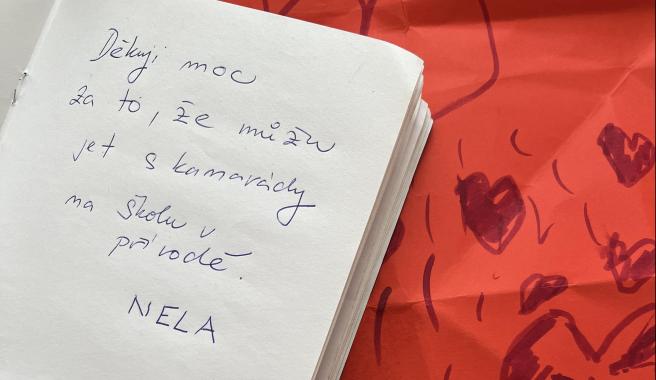 Děkuji moc
za to, že můžu
jet s kamarády
na školu v
přírodě.
NELA